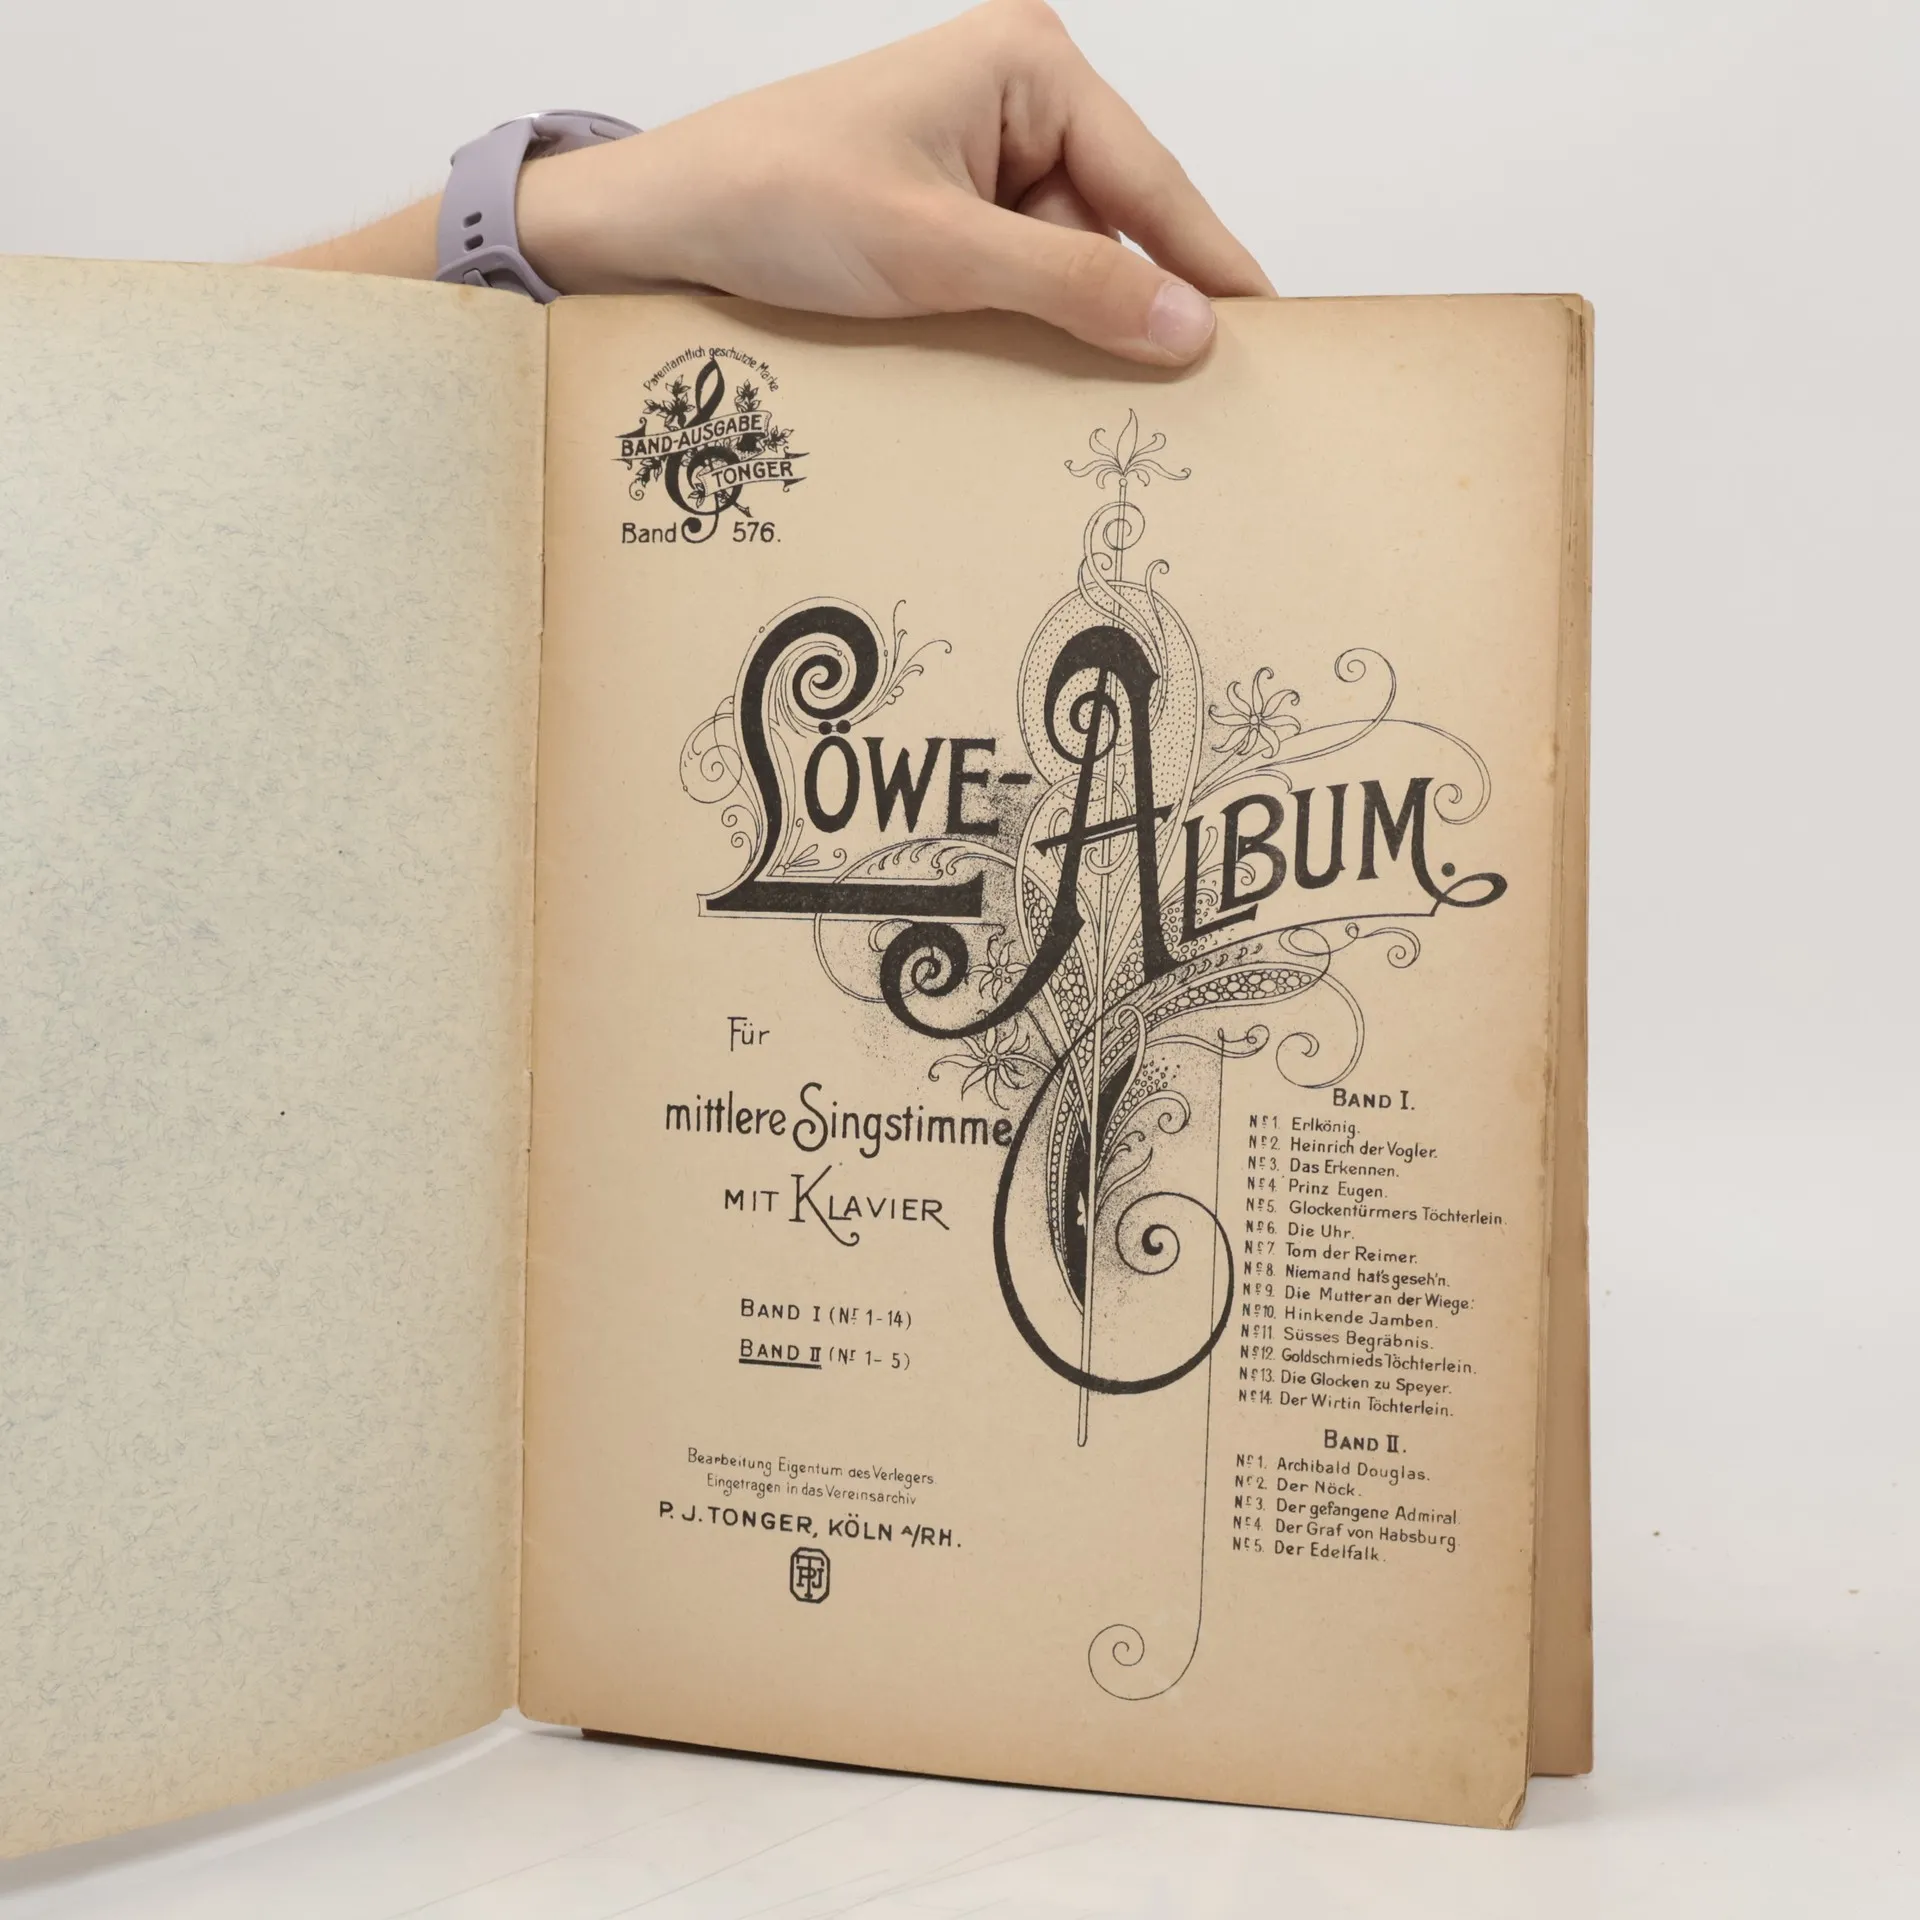 Patentamtlich geschützte Marke
BAND-AUSGABE
TONGER
Band 576.
LÖWE-ALBUM.
Für
mittlere Singstimme
MIT KLAVIER
BAND I (Nr. 1-14)
BAND II (Nr. 1-5)
Bearbeitung Eigentum des Verlegers
Eingetragen in das Vereinsarchiv
P. J. TONGER, KÖLN A/RH.
PJT
BAND I.
No 1. Erlkönig.
No 2. Heinrich der Vogler.
No 3. Das Erkennen.
No 4. Prinz Eugen.
No 5. Glockentürmers Töchterlein.
No 6. Die Uhr.
No 7. Tom der Reimer.
No 8. Niemand hat's geseh'n.
No 9. Die Mutter an der Wiege.
No 10. Hinkende Jamben.
No 11. Süsses Begräbnis.
No 12. Goldschmieds Töchterlein.
No 13. Die Glocken zu Speyer.
No 14. Der Wirtin Töchterlein.
BAND II.
No 1. Archibald Douglas.
No 2. Der Nöck.
No 3. Der gefangene Admiral.
No 4. Der Graf von Habsburg.
No 5. Der Edelfalk.